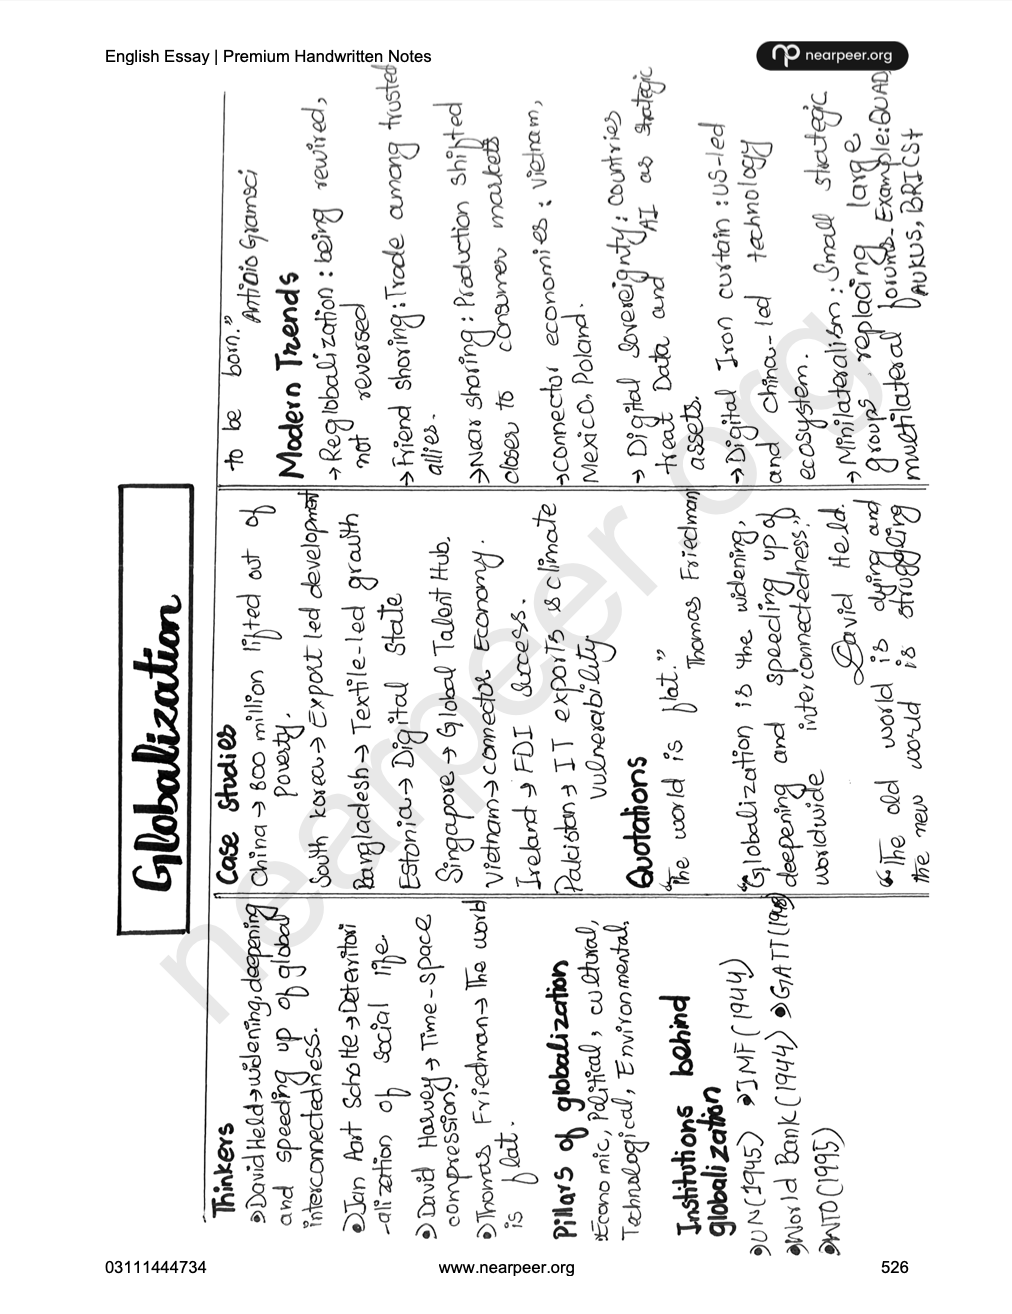 English Essay | Premium Handwritten Notes
nearpeer.org
Globalization
Thinkers
David Held→widening,deepening
and speeding up of global
interconnectedness.
Jan Aart Scholte→Deterritori
-alization of social life.
David Harvey→Time-space
compression?
Thomas Friedman→The world
is flat.
Pillars of globalization
Economic, Political, cultural,
Technological, Environmental.
Institutions behind
globalization
UN(1945) IMF(1944)
World Bank(1944) GATT(1948)
WTO(1995)
Case studies
China→800 million lifted out of
poverty.
South Korea→Export led development
Bangladesh→Textile-led growth
Estonia→Digital State
Singapore→Global Talent Hub.
Vietnam→connector Economy.
Ireland→FDI success.
Pakistan→IT exports & climate
vulnerability
Quotations
"The world is flat."
Thomas Friedman
"Globalization is the widening,
deepening and speeding up of
worldwide interconnectedness,"
David Held.
"The old world is dying and
the new world is struggling
to be born."
Antioio Gramsci
Modern Trends
→Reglobalization: being rewired,
not reversed
→Friend shoring:Trade among trusted
allies.
→Near shoring: Production shifted
closer to consumer markets
→connector economies: vietnam,
Mexico, Poland.
→Digital sovereignty: countries
treat Data and AI as strategic
assets.
→Digital Iron curtain:US-led
and china-led technology
ecosystem.
→Minilateralism: Small strategic
groups replacing large
multilateral forums. Example:QUAD,
AUKUS, BRICS+
nearpeer.org
03111444734
www.nearpeer.org
526